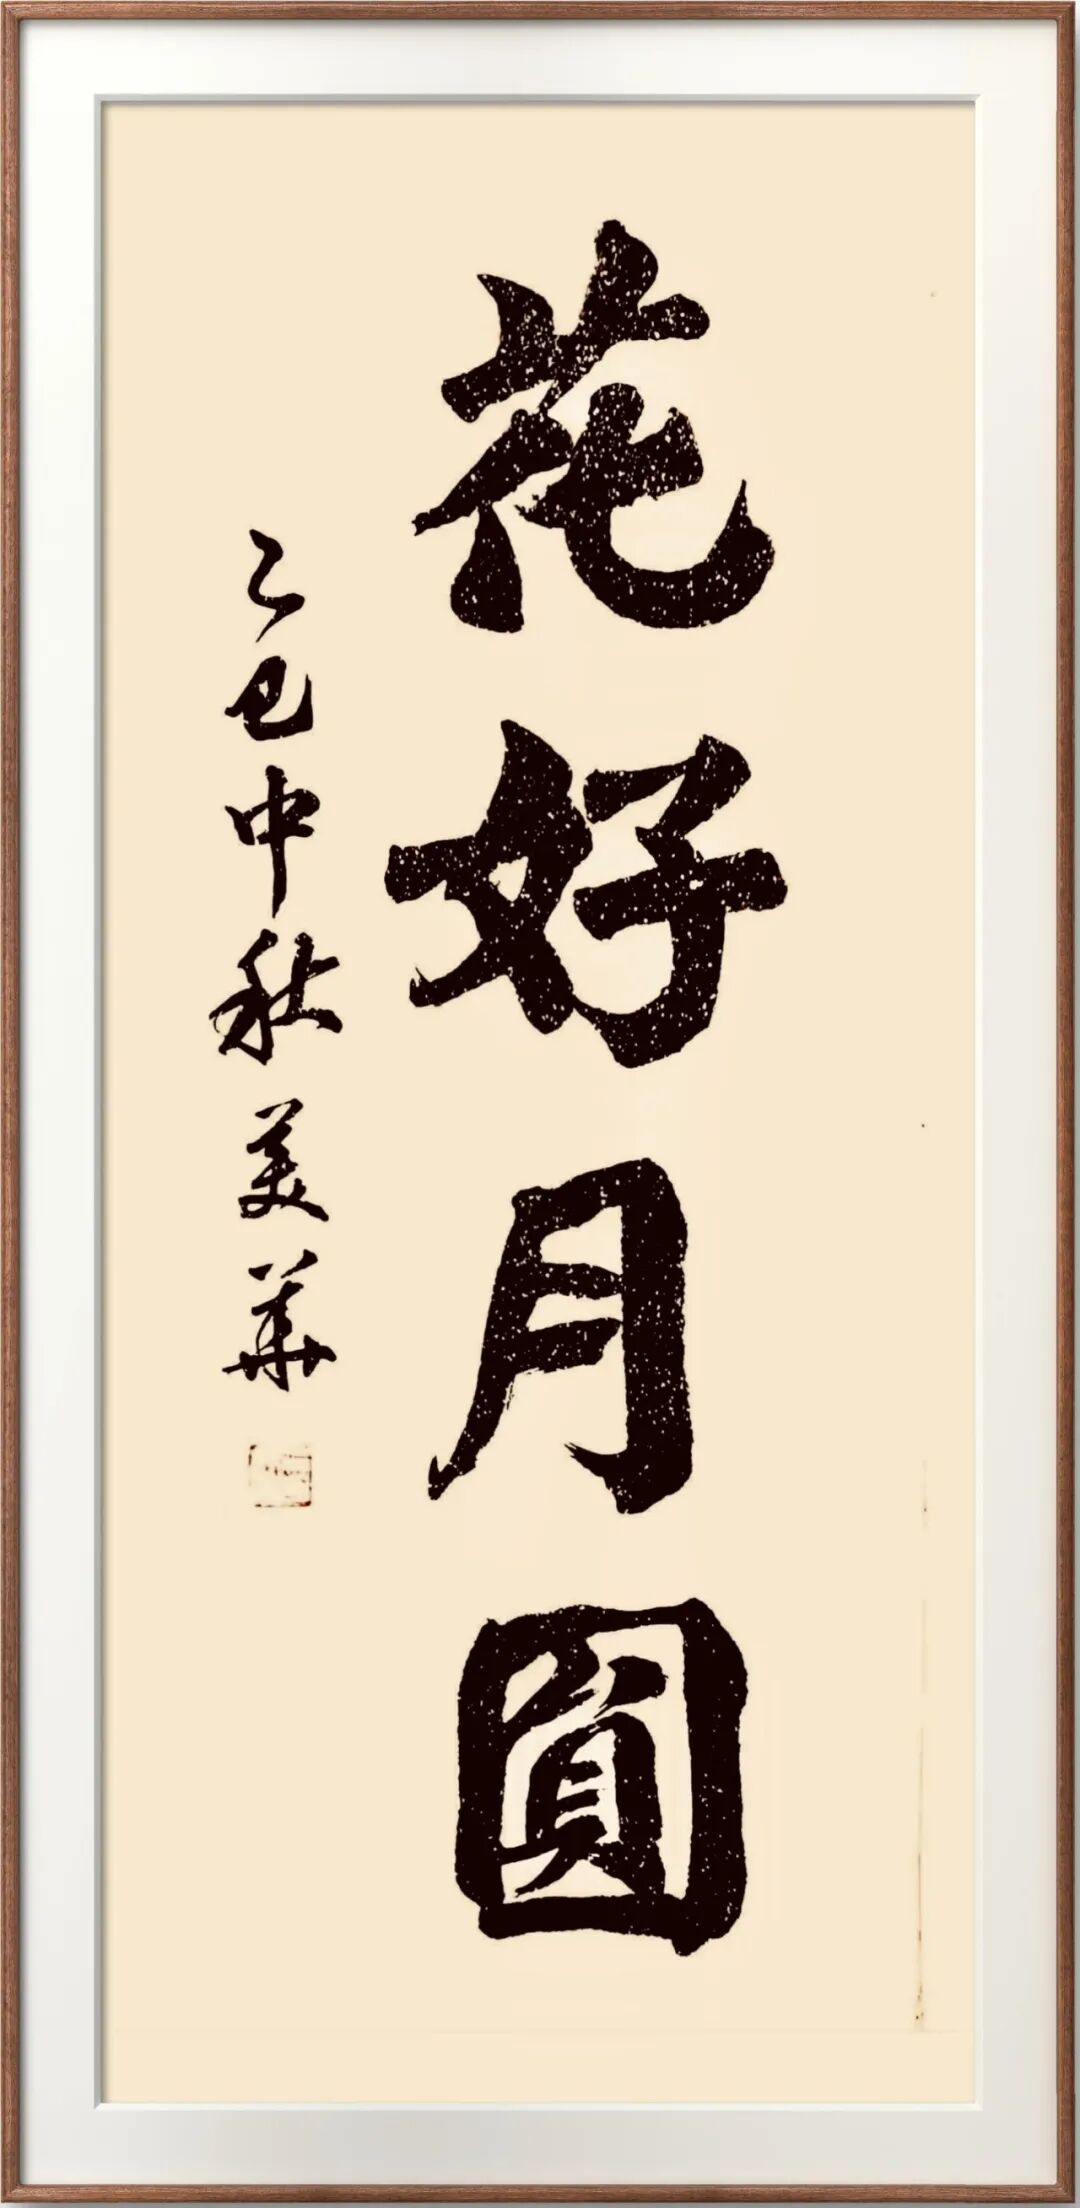 花好月圓
乙巳中秋美華